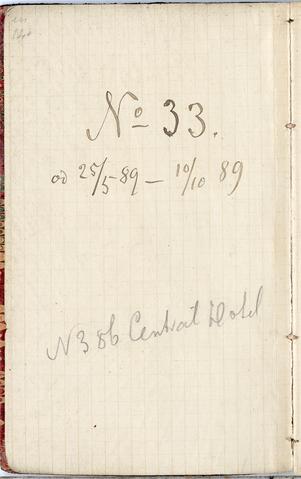 No 33.
od 25/5 89 — 10/10 89
N 386 Central Hotel